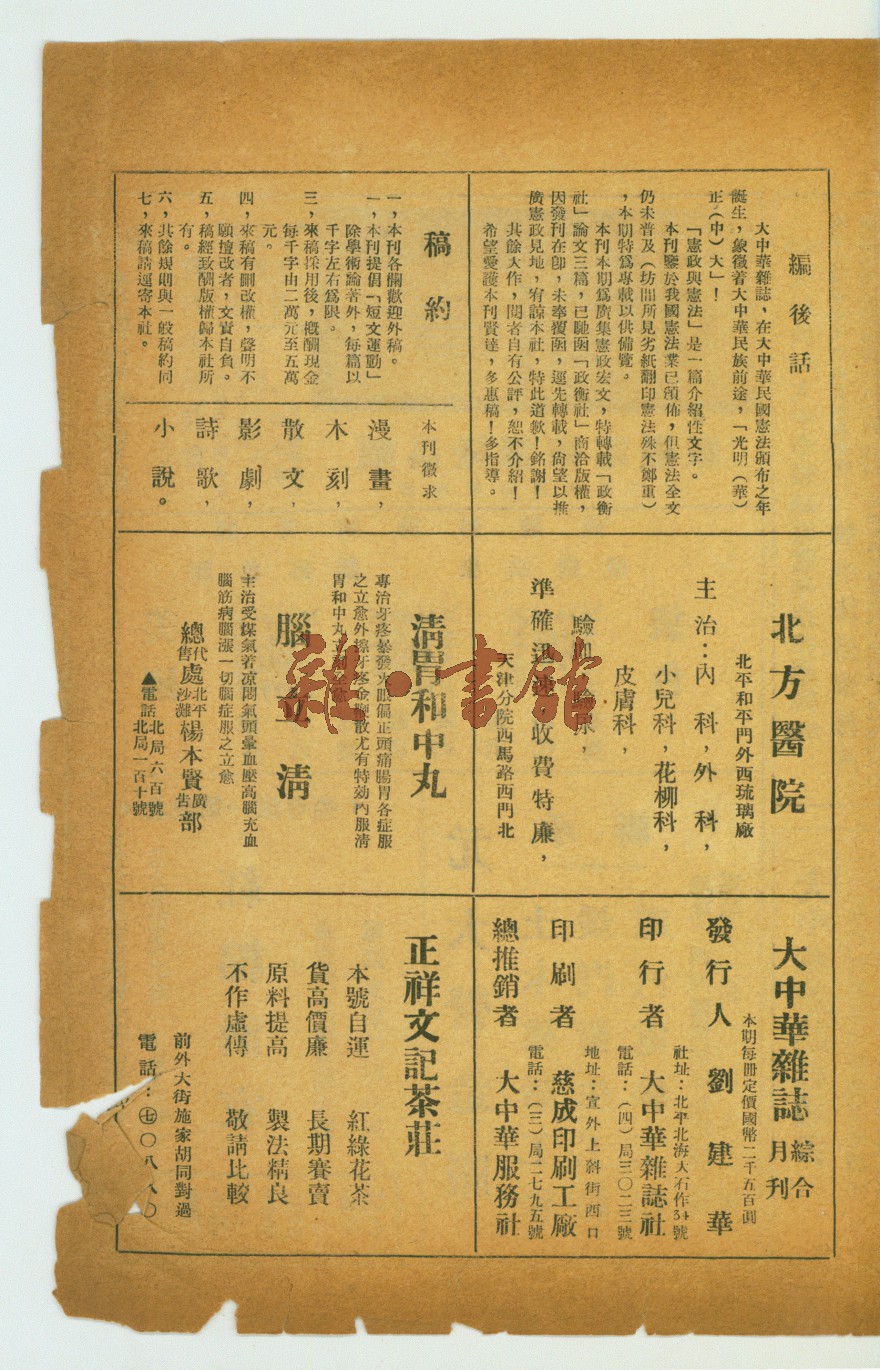 編後話
大中華雜誌，在大中華民國憲法頒布之年
誕生，象徵着大中華民族前途，「光明（華）
正（中）大」！
「憲政與憲法」是一篇介紹性文字。
本刊鑒於我國憲法業已頒佈，但憲法全文
仍未普及（坊間所見劣紙翻印憲法殊不鄭重）
，本期特爲專載以供備覽。
本刊本期爲廣集憲政宏文，特轉載「政衡
社」論文三篇，已馳函「政衡社」商洽版權，
因發刊在卽，未奉覆函，逕先轉載，尙望以推
廣憲政見地，宥諒本社，特此道歉！銘謝！
其餘大作，閱者自有公評，恕不介紹！
希望愛護本刊賢達，多惠稿！多指導。
稿約
一，本刊各欄歡迎外稿。
一，本刊提倡「短文運動」
除學術論著外，每篇以
千字左右爲限。
三，來稿採用後，槪酬現金
每千字由二萬元至五萬
元。
四，來稿有刪改權，聲明不
願擅改者，文責自負。
五，稿經致酬版權歸本社所
有。
六，其餘規則與一般稿約同
七，來稿請逕寄本社。
本刊徵求
漫畫，
木刻，
散文，
影劇，
詩歌，
小說。
北方醫院
北平和平門外西琉璃廠
主治：內科，外科，
小兒科，花柳科，
皮膚科，
驗血，驗尿，
準確迅速，收費特廉，
天津分院西馬路西門北
清胃和中丸
專治牙疼暴發火眼偏正頭痛腸胃各症服
之立愈外擦牙疼金鹽散尤有特効內服清
胃和中丸立
腦立清
主治受煤氣着凉悶氣頭暈血壓高腦充血
腦筋病腦漲一切腦症服之立愈
總代售處北平沙灘楊本賢廣告部
▲電話北局六百號
北局一百十號
大中華雜誌綜合月刊
本期每冊定價國幣二千五百圓
發行人 劉建華
社址：北平北海大石作34號
印行者 大中華雜誌社
電話：（四）局三〇二三號
地址：宣外上斜街西口
印刷者 慈成印刷工廠
電話：（三）局二七九五號
總推銷者 大中華服務社
正祥文記茶莊
本號自運 紅綠花茶
貨高價廉 長期賽賣
原料提高 製法精良
不作虛傳 敬請比較
前外大街施家胡同對過
電話：㊆〇八八〇
雜·書館